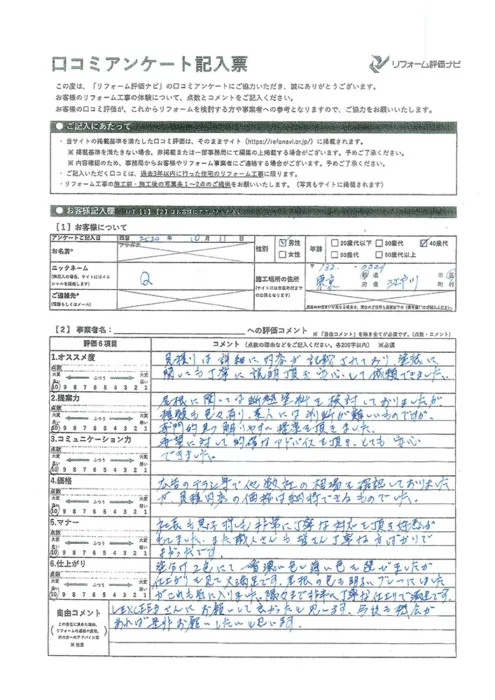 口コミアンケート記入票
リフォーム評価ナビ
この度は、「リフォーム評価ナビ」の口コミアンケートにご協力いただき、誠にありがとうございます。
お客様のリフォーム工事の体験について、点数とコメントをご記入ください。
お客様の口コミ評価が、これからリフォームを検討する方や事業者への参考となりますので、ご協力をお願いいたします。
● ご記入にあたって
・当サイトの掲載基準を満たした口コミ評価は、そのままサイト(https://refonavi.or.jp/)に掲載されます。
※ 掲載基準を満たさない場合、非掲載または一部事務局にて編集の上掲載する場合がございます。予めご了承ください。
※ 内容確認のため、事務局からお客様やリフォーム事業者にご連絡する場合がございます。予めご了承ください。
・ご記入いただく口コミは、過去3年以内に行った住宅のリフォーム工事に限ります。
・リフォームの施工前・施工後の写真各1~2点のご提供をお願いいたします。（写真もサイトに掲載されます）
● お客様記入欄
【1】お客様について
アンケートご記入日 西暦 2020 年 10 月 11 日
お名前*
性別 男性 女性
年齢 20歳代以下 30歳代 40歳代 50歳代 60歳代以上
ニックネーム
Q
施工場所の住所
〒132-0024
東京 都 道 府 県 江戸川 市 区 町 村
ご連絡先*
【2】事業者名： への評価コメント
※「自由コメント」を除き全てが必須です。（点数・コメント）
評価6項目 コメント（点数の理由などをご記入ください。各200字以内） ※必須
1.オススメ度
点数
大変良い ← ふつう → 大変悪い
10 9 8 7 6 5 4 3 2 1
見積りは詳細に内容が記載されており塗装に
関しても丁寧に説明頂き安心して依頼できました。
2.提案力
点数
大変良い ← ふつう → 大変悪い
10 9 8 7 6 5 4 3 2 1
屋根に関しては断熱塗料を検討しておりましたが
種類も色々有り、素人には判断が難しいものですが、
専門的且つ解りやすい提案を頂きました。
3.コミュニケーション力
点数
大変良い ← ふつう → 大変悪い
10 9 8 7 6 5 4 3 2 1
希望に対して的確なアドバイスを頂き、とても安心
できました。
4.価格
点数
大変良い ← ふつう → 大変悪い
10 9 8 7 6 5 4 3 2 1
広告のチラシ等で他数社の相場を確認しておりました
が見積内容の価格は納得できるものでした。
5.マナー
点数
大変良い ← ふつう → 大変悪い
10 9 8 7 6 5 4 3 2 1
非常に丁寧な対応を頂き好感が
もてました。また職人さんも皆さん丁寧な
6.仕上がり
点数
大変良い ← ふつう → 大変悪い
10 9 8 7 6 5 4 3 2 1
色を選びましたが
仕上りを見て大満足です。屋根の色も明るいグレーにしました
がこれも気に入りました。隅々まで非常に丁寧な仕上りで満足です。
自由コメント
（この会社に決めた理由、リフォームの価格や変化、次の方へのアドバイス等）
※ 任意
LEXCEEDさんにお願いして良かったと思います。
あれば是非お願いしたいと思います。